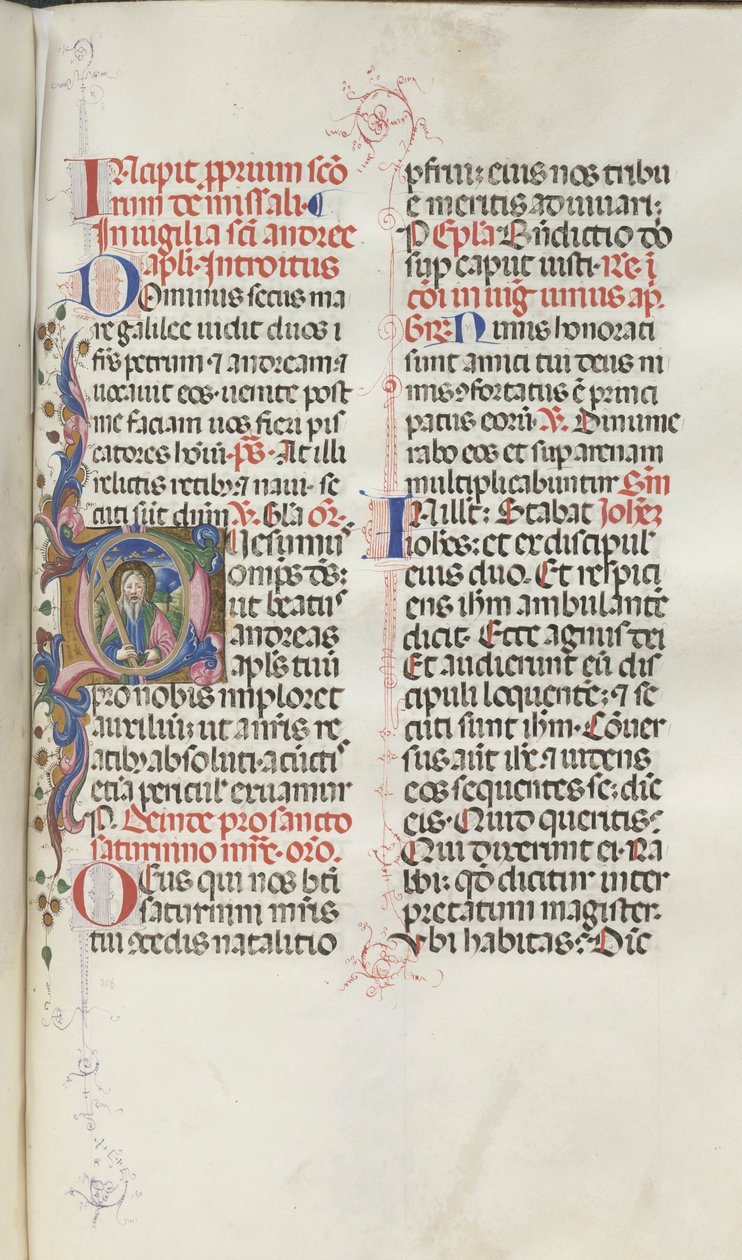 INcipit ꝓprium scõ
rum de missali·
In uigilia scĩ andree
apľi·Introitus
DOminus secus ma
re galilee uidit duos i
frẽs petrum ⁊ andream ⁊
uocauit eos·uenite post
me faciam uos fieri pis
catores hoĩum·p̃s·At illi
relictis retibꝫ ⁊ naui·se
cuti sũt dñm ℣·Gľa or̃·
QUesumus
omp̃s ds̃:
ut beatus
andreas
apľs tuus
pro nobis imploret
auxilium: ut a nr̃is re
atibꝫ absoluti·a cunctis
etiã pericuľ exuamur
P. Deinde pro sancto
saturinno mr̃e·orõ.
DEus qui nos bt̃i
saturinni mr̃is
tui ꝯcedis natalitio
pfrui: eius nos tribu
e meritis adiuuari:
P Epľa Bñdictio dõ
sup caput iusti·Re·ĩ
cõi in uig̃ unius ap̃.
Gr̃e·Nimis honorati
sunt amici tui deus ni
mis ꝯfortatus ẽ princi
patus eorũ ℣. Dinume
rabo eos et sup arenam
multiplicabuntur Sm̃
IN illľ: Stabat Johẽs
iohẽs: et ex discipuľ
eius duo. Et respici
ens ihm̃ ambulantẽ
dicit· Ecce agnus dei
Et audierunt eũ dis
cipuli loquentẽ: ⁊ se
cuti sunt ihm̃· Cõuer
sus aut̃ ihs̃ ⁊ uidens
eos sequentes se: dic̃
eis· Quid queritis?
Qui dixerunt ei· Ra
bbi: qd̃ dicitur inter
pretatum magister·
Vbi habitas? Dic̃
256